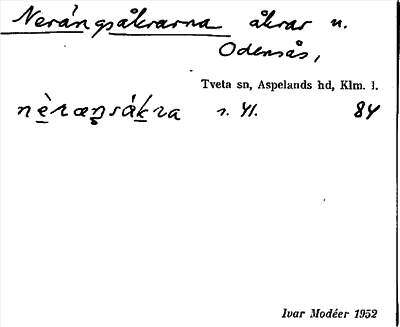 Nerångsåkrarna åkrar n.
Odensås,
Tveta sn, Aspelands hd, Klm. l.
nèræŋsåkra r. 41. 84
Ivar Modéer 1952